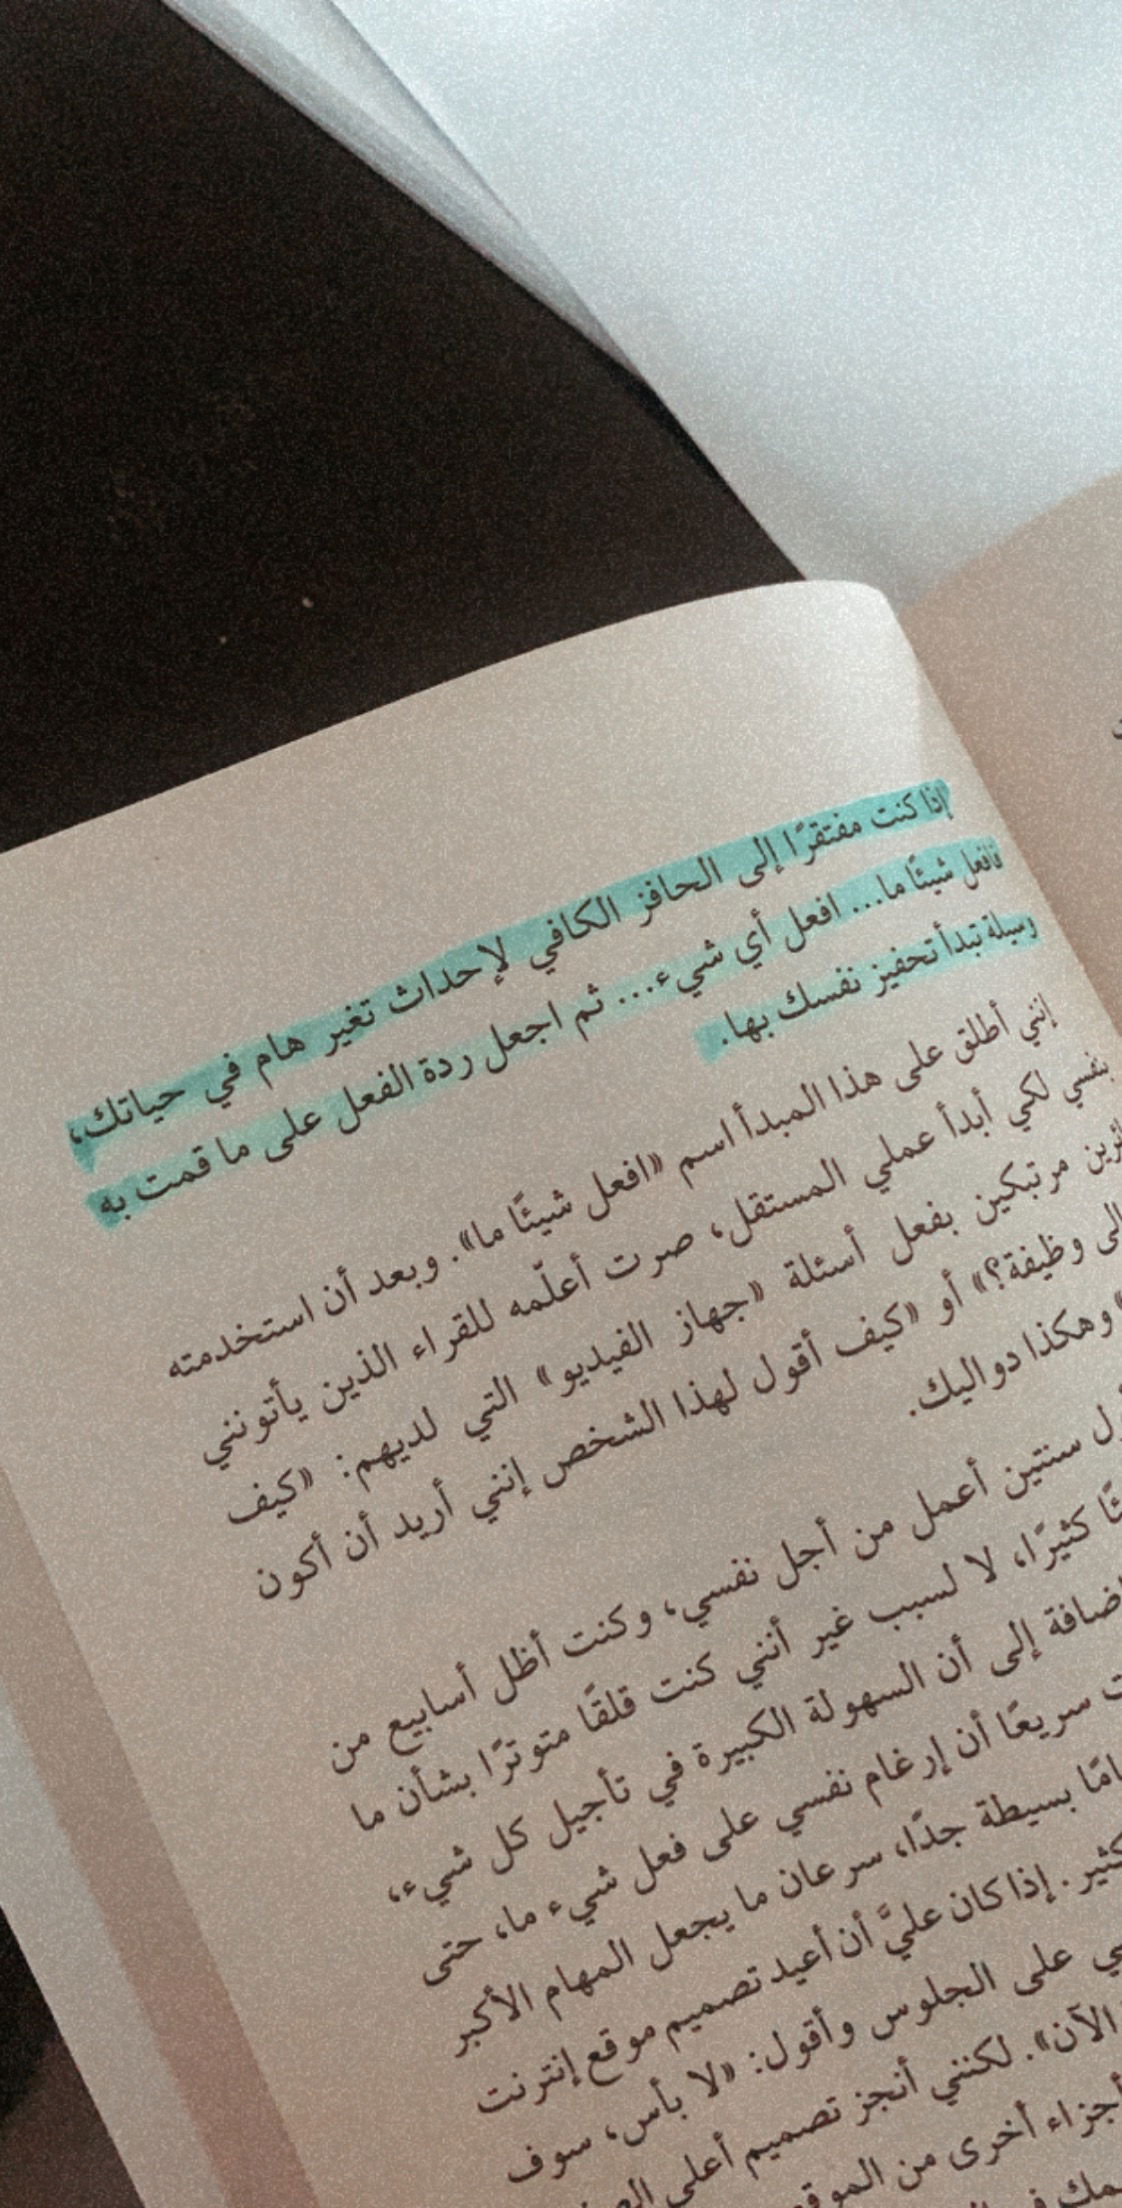 إذا كنت مفتقرًا إلى الحافز الكافي لإحداث تغير هام في حياتك،
فافعل شيئًا ما... افعل أي شيء... ثم اجعل ردة الفعل على ما قمت به
وسيلة تبدأ تحفيز نفسك بها.
إنني أطلق على هذا المبدأ اسم «افعل شيئًا ما». وبعد أن استخدمته
بنفسي لكي أبدأ عملي المستقل، صرت أعلّمه للقراء الذين يأتونني
مرتبكين بفعل أسئلة «جهاز الفيديو» التي لديهم: «كيف
وظيفة؟» أو «كيف أقول لهذا الشخص إنني أريد أن أكون
وهكذا دواليك.
سنتين أعمل من أجل نفسي، وكنت أظل أسابيع من
كثيرًا، لا لسبب غير أنني كنت قلقًا متوترًا بشأن ما
إلى أن السهولة الكبيرة في تأجيل كل شيء،
سريعًا أن إرغام نفسي على فعل شيء ما، حتى
بسيطة جدًا، سرعان ما يجعل المهام الأكبر
إذا كان عليَّ أن أعيد تصميم موقع إنترنت
على الجلوس وأقول: «لا بأس، سوف
الآن». لكنني أنجز تصميم أعلى
أجزاء أخرى من